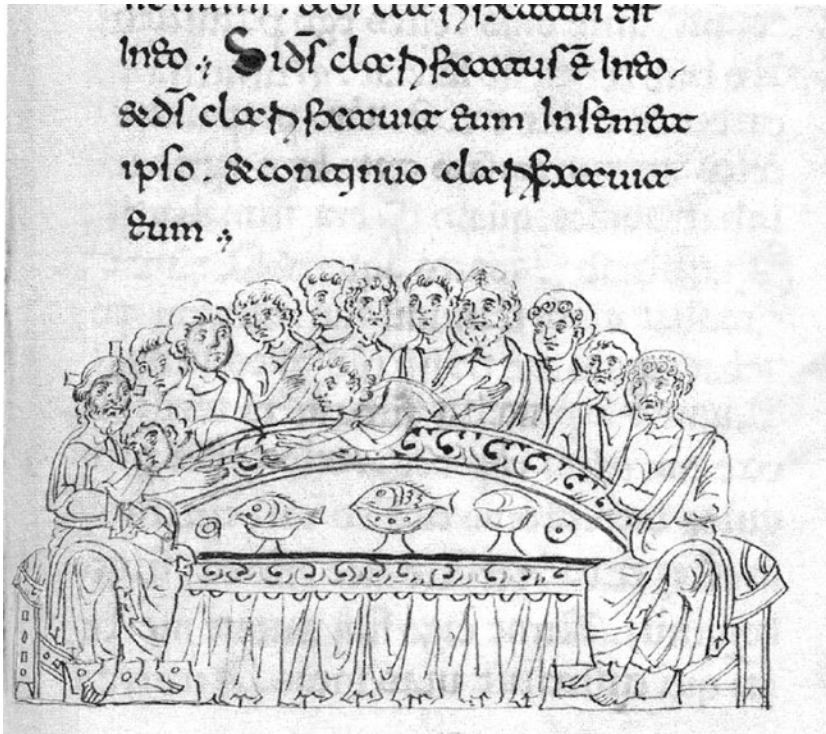 In eo . Si d̄s clarificatus ē In eo .
& d̄s clarificauit eum In semet
ipso . & continuo clarificauit
eum .